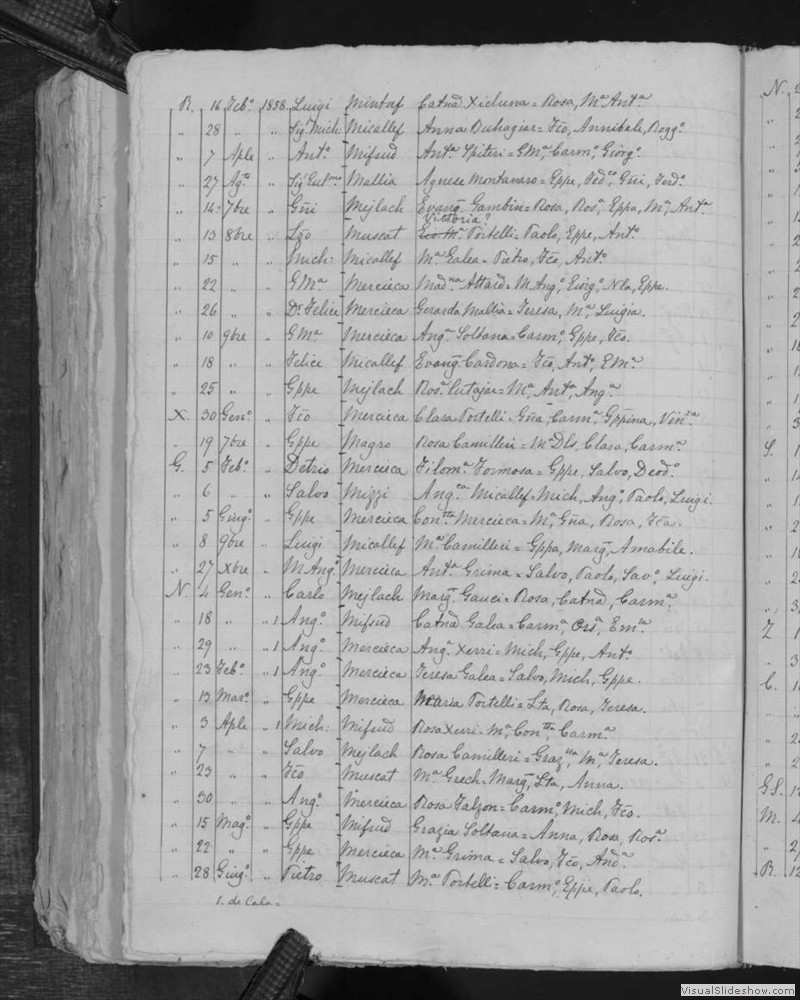 R. 16 Feb.º 1858. Luigi Mintof Catnã Xicluna = Rosa, M.ª Ant.ª
" 28 " " Sig.r Mich Micallef Anna Buhagiar = Fcõ, Annibale, Rogg.º
" 7 Aple " Ant.º Mifsud Ant.ª Spiteri = GM.ª, Carm.º, Giorg.º
" 27 Ag.to " Mallia Agnese Montanaro = Gppe, Fed.co, Gñi, Ferd.º
" 14 7bre " Gñi Mejlach Evang. Gambin = Rosa, Ros.ª, Gppa, M.ª, Ant.ª
Vittoria?
" 13 8bre " Lzõ Muscat Portelli = Paolo, Gppe, Ant.º
" 15 " " Mich: Micallef M.ª Galea = Pietro, Fcõ, Ant.º
" 22 " " GM.ª Mercieca Mad.na Attard = M Ang.º, Giorg.º, Nla, Gppe.
" 26 " " D.r Felice Mercieca Gerarda Mallia = Teresa, M.ª Luigia.
" 10 9bre " GM.ª Mercieca Ang.ª Soltana = Carm.º, Gppe, Fcõ.
" 18 " " Felice Micallef Evang. Cardona = Fcõ, Ant.º, GM.ª
" 25 " " Gppe Mejlach Ros.ª Cutajar = M.ª, Ant.ª, Ang.ª
X. 30 Gen.º " Fcõ Mercieca Clara Portelli = Gña, Carm.ª, Gppina, Vin.za
" 19 7bre " Gppe Magro Rosa Camilleri = M.ª Dls, Clara, Carm.ª
G. 5 Feb.º " Detrio Mercieca Filom.ª Formosa = Gppe, Salvo, Deod.º
" 6 " " Salvo Mizzi Ang.ca Micallef = Mich, Ang.º, Paolo, Luigi.
" 5 Giug.º " Gppe Mercieca Con.tta Mercieca = M.ª, Gña, Rosa, Fca.
" 8 9bre " Luigi Micallef M.ª Camilleri = Gppa, Marg., Amabile.
" 27 Xbre " M. Ang.º Mercieca Ant.ª Grima = Salvo, Paolo, Sav.º, Luigi.
N. 4 Gen.º " Carlo Mejlach Marg. Gauci = Rosa, Catnã, Carm.ª
" 18 " " 1 Ang.º Mifsud Catnã Galea = Carm.ª, Ors.ª, Em.la
" 29 " " 1 Ang.º Mercieca Ang.ª Xerri = Mich, Gppe, Ant.º
" 23 Feb.º " 1 Ang.º Mercieca Teresa Galea = Salvo, Mich, Gppe.
" 13 Mar.º " Gppe Mercieca Maria Portelli = Lta, Rosa, Teresa.
" 3 Aple " 1 Mich: Mifsud Rosa Xerri = M.ª Con.tta, Carm.ª
" 7 " " Salvo Mejlach Rosa Camilleri = Graz.lla, M.ª, Teresa.
" 23 " " Fcõ Muscat M.ª Grech = Marg., Lta, Anna.
" 30 " " Ang.º Mercieca Rosa Falzon = Carm.º, Mich, Fcõ.
" 15 Mag.º " Gppe Mifsud Grazia Soltana = Anna, Rosa, Ros.ª
" 22 " " Gppe Mercieca M.ª Grima = Salvo, Fcõ, And.ª
" 28 Giug.º " Pietro Muscat M.ª Portelli = Carm.º, Gppe, Paolo.
1. de Cala =
N.
S.
Z
C.
GS.
M.
R. 12
VisualSlideshow.com